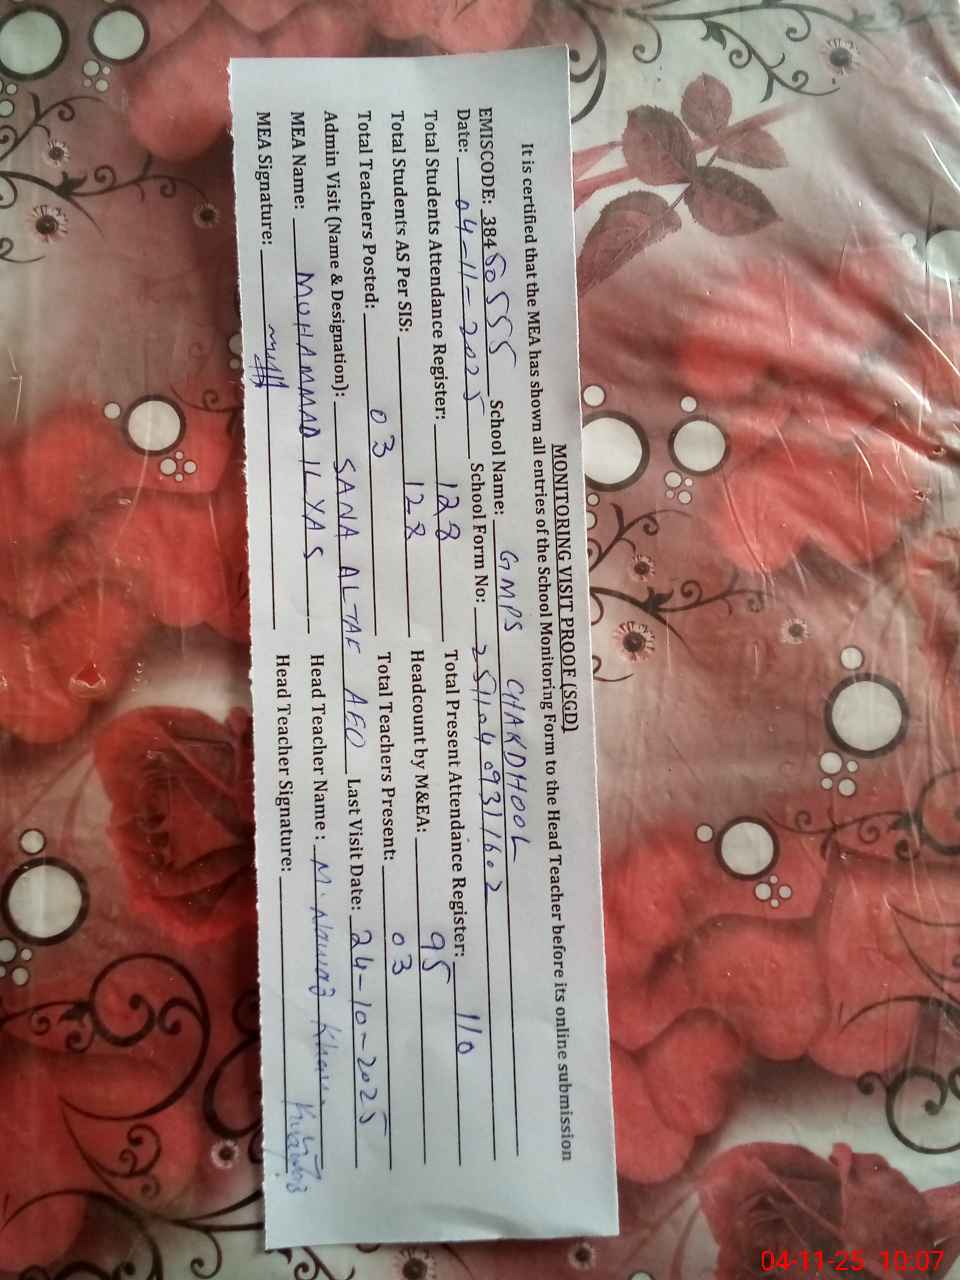 MONITORING VISIT PROOF (SGD)
It is certified that the MEA has shown all entries of the School Monitoring Form to the Head Teacher before its online submission
EMISCODE: 38450555 School Name: GMPS CHAKDHOOL
Date: 04-11-2025 School Form No: 2511040931602
Total Students Attendance Register: 128 Total Present Attendance Register: 110
Total Students AS Per SIS: 128 Headcount by M&EA: 95
Total Teachers Posted: 03 Total Teachers Present: 03
Admin Visit (Name & Designation): SANA ALTAF AEO Last Visit Date: 24-10-2025
MEA Name: MOHAMMAD ILYAS Head Teacher Name: M. Nawaz Khan
MEA Signature: Head Teacher Signature:
04-11-25 10:07